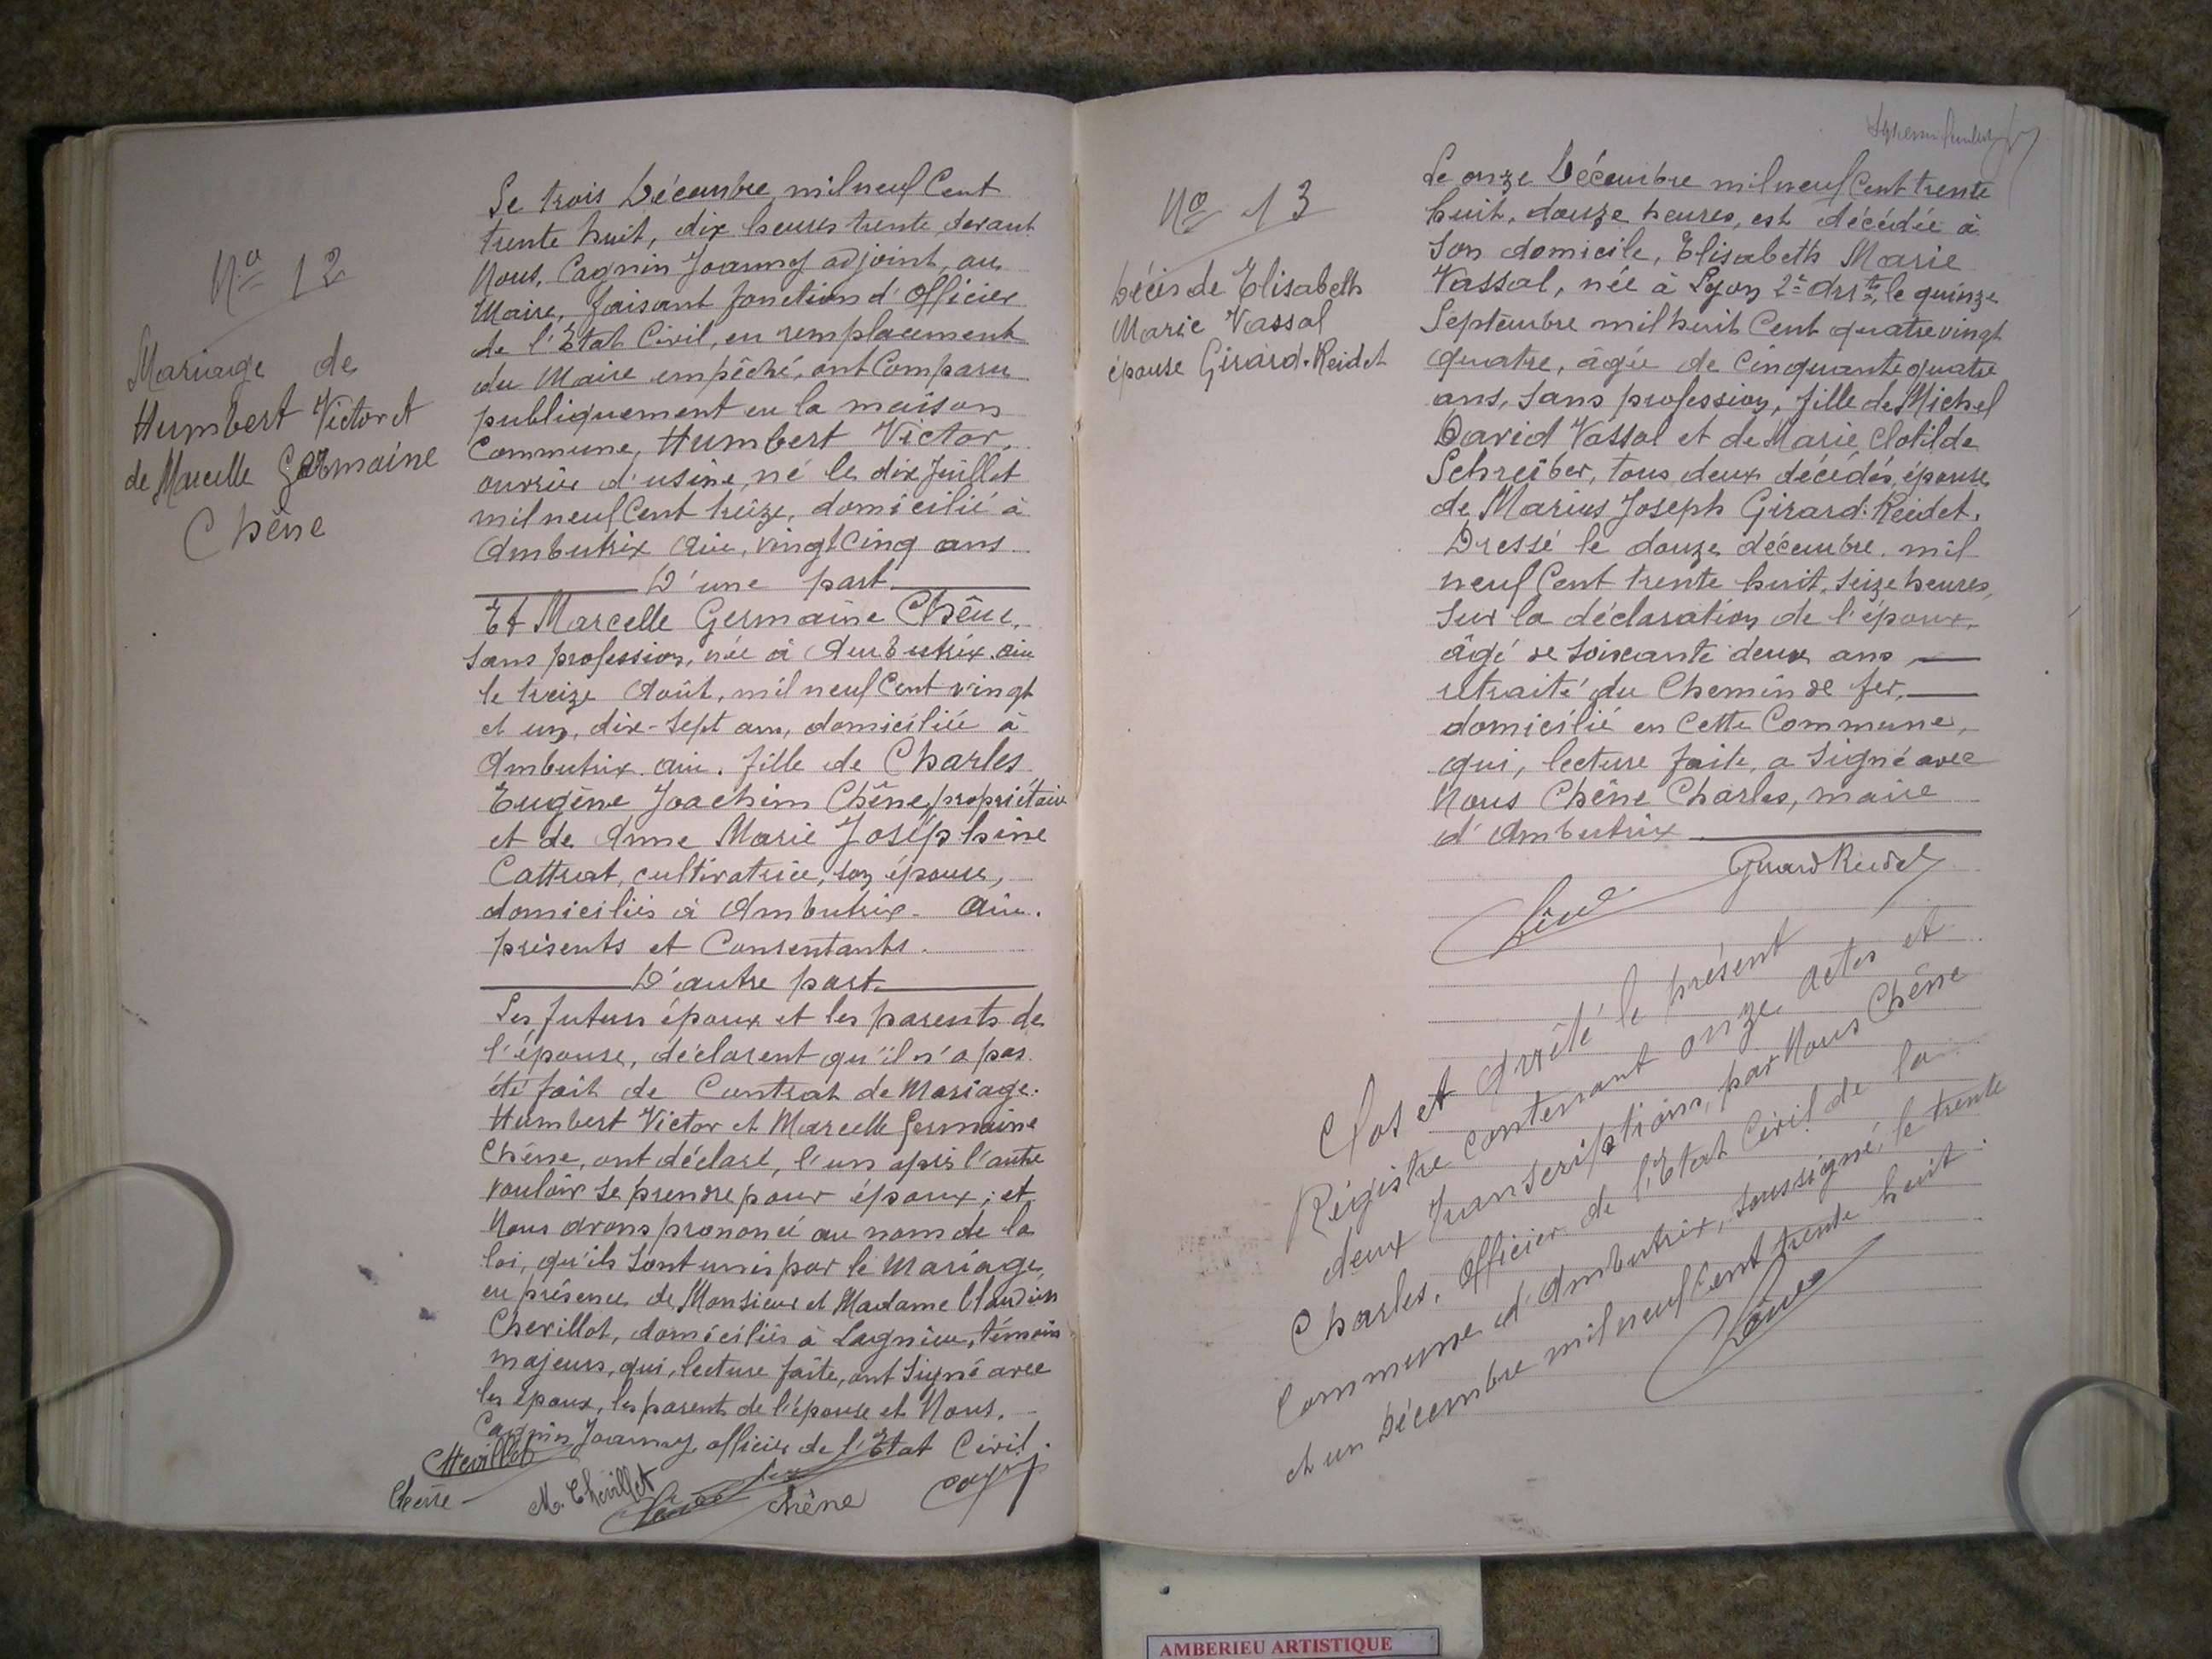 No 12
Mariage de
Humbert Victor et
de Marcelle Germaine
Chêne
Le trois Décembre, mil neuf Cent
trente huit, dix heures trente, devant
Nous, Cagnin Joanny adjoint, au
Maire, faisant fonction d'Officier
de l'Etat Civil, en remplacement
du Maire empêché, ont Comparu
publiquement en la maison
Commune, Humbert Victor,
ouvrier d'usine, né le dix Juillet
mil neuf Cent treize, domicilié à
Ambutrix Ain, vingt Cinq ans
D'une part.
Et Marcelle Germaine Chêne,
sans profession, née à Ambutrix. ain
le treize Août, mil neuf Cent vingt
et un, dix-sept ans, domiciliée à
Ambutrix. ain. fille de Charles
Eugène Joachim Chêne, propriétaire
et de Anne Marie Joséphine
Cattrat, cultivatrice, son épouse,
domiciliés à Ambutrix. Ain.
présents et Consentants.
D'autre part.
Les futurs époux et les parents de
l'épouse, déclarent qu'il n'a pas
été fait de Contrat de Mariage.
Humbert Victor et Marcelle Germaine
Chêne, ont déclaré, l'un après l'autre
vouloir se prendre pour époux; et
Nous avons prononcé au nom de la
loi, qu'ils sont unis par le Mariage,
en présence de Monsieur et Madame Claudius
Chevillot, domiciliés à Lagnieu, témoins
majeurs, qui, lecture faite, ont signé avec
les époux, les parents de l'épouse et Nous,
Cagnin Joanny, officier de l'Etat Civil.
Chevillot
Chêne
M. Chevillot
Chêne
Cagnin
No 13
Décès de Elisabeth
Marie Vassal
épouse Girard-Reidet
Le onze Décembre mil neuf Cent trente
huit, douze heures, est décédée à
son domicile, Elisabeth Marie
Vassal, née à Lyon 2e Arrt, le quinze
Septembre mil huit Cent quatre vingt
quatre, âgée de Cinquante quatre
ans, sans profession, fille de Michel
David Vassal et de Marie Clotilde
Schreiber, tous deux décédés, épouse
de Marius Joseph Girard-Reidet.
Dressé le douze décembre, mil
neuf Cent trente huit, seize heures,
sur la déclaration de l'époux,
âgé de soixante deux ans
retraité du Chemin de fer,
domicilié en Cette Commune,
qui, lecture faite, a signé avec
Nous Chêne Charles, maire
d'Ambutrix
Girard Reidet
Chêne
Clos et Arrêté le présent
Registre Contenant onze Actes et
deux transcriptions, par Nous Chêne
Charles, Officier de l'Etat Civil de la
Commune d'Ambutrix, soussigné, le trente
et un Décembre mil neuf Cent trente huit.
Chêne
AMBERIEU ARTISTIQUE